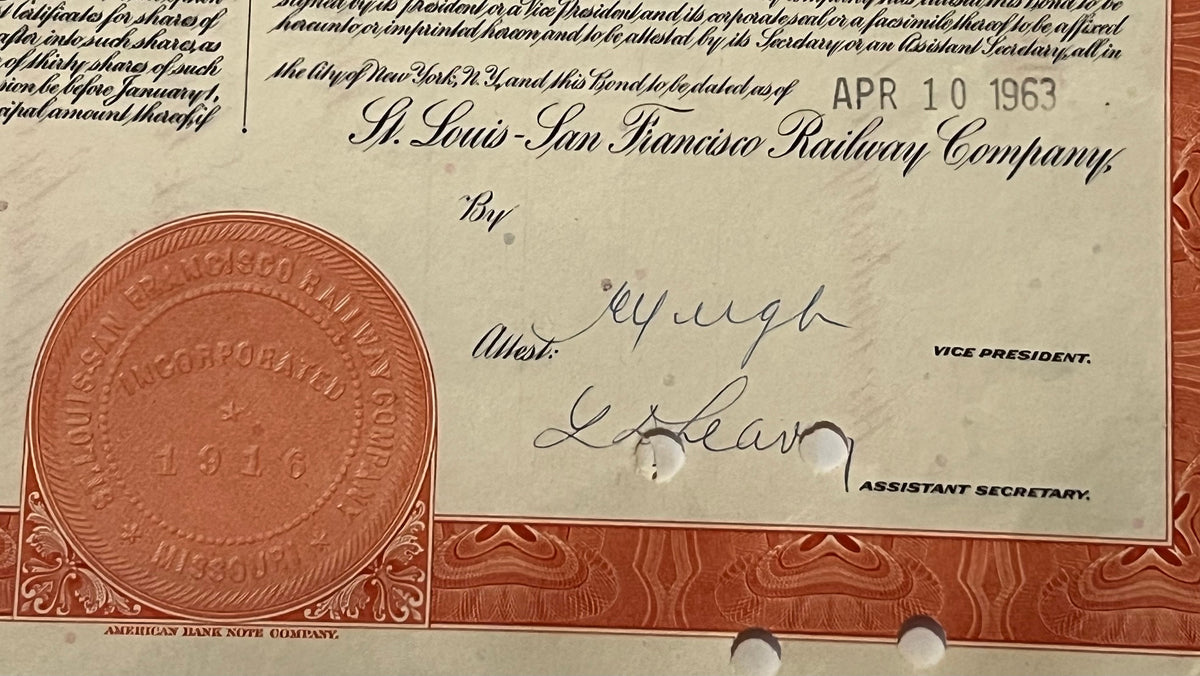 t Certificates for shares of
after into such shares, as
of thirty shares of such
sion be before January 1,
cipal amount thereof, if
signed by its President or a Vice President and its corporate seal or a facsimile thereof to be affixed
hereunto or imprinted hereon and to be attested by its Secretary or an Assistant Secretary, all in
the City of New York, N.Y., and this Bond to be dated as of APR 10 1963
St. Louis-San Francisco Railway Company,
By
VICE PRESIDENT.
Attest:
ASSISTANT SECRETARY.
ST. LOUIS-SAN FRANCISCO RAILWAY COMPANY
INCORPORATED
1916
MISSOURI
AMERICAN BANK NOTE COMPANY.